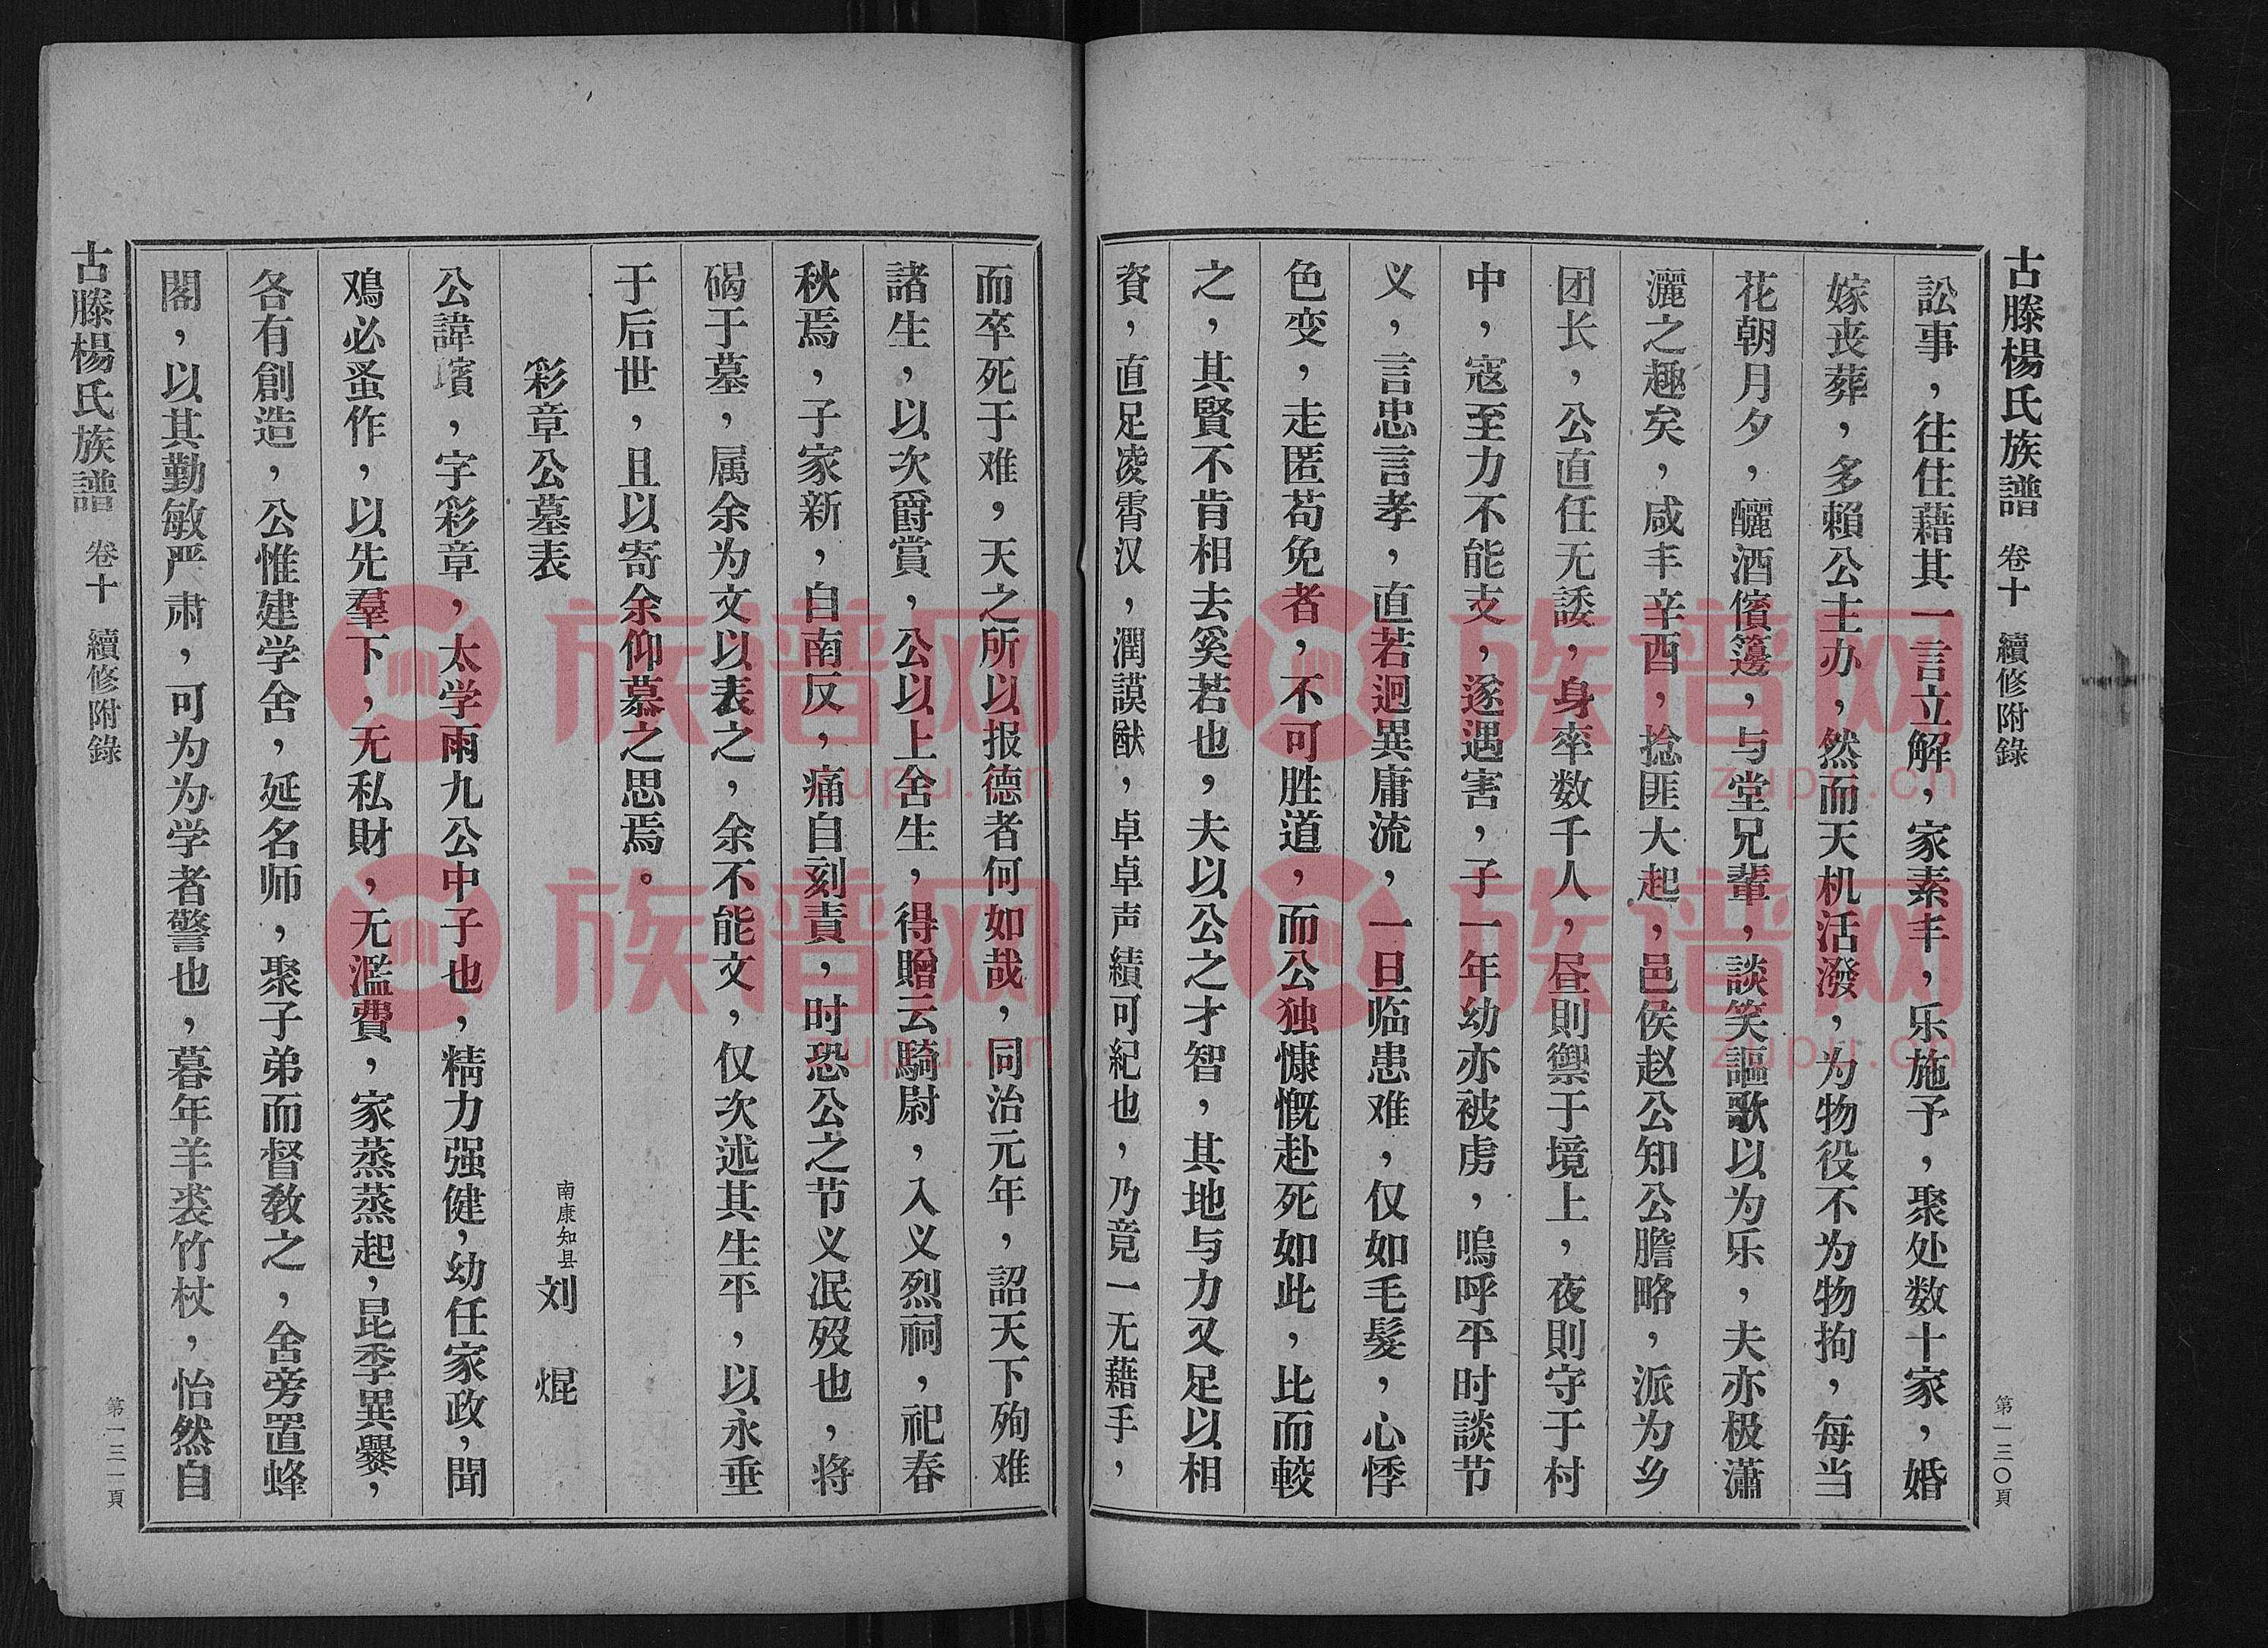 古滕楊氏族譜 卷十 續修附錄 第一三〇頁
訟事，往住藉其一言立解，家素丰，乐施予，聚处数十家，婚
嫁丧葬，多賴公主办，然而天机活潑，为物役不为物拘，每当
花朝月夕，釃酒儐籩，与堂兄輩，談笑謳歌以为乐，夫亦极瀟
灑之趣矣，咸丰辛酉，捻匪大起，邑侯赵公知公膽略，派为乡
团长，公直任无諉，身率数千人，昼則禦于境上，夜則守于村
中，寇至力不能支，遂遇害，子一年幼亦被虏，嗚呼平时談节
义，言忠言孝，直若迥異庸流，一旦临患难，仅如毛髮，心悸
色变，走匿苟免者，不可胜道，而公独慷慨赴死如此，比而較
之，其賢不肯相去奚若也，夫以公之才智，其地与力又足以相
資，直足凌霄汉，潤謨猷，卓卓声績可紀也，乃竟一无藉手，
而卒死于难，天之所以报德者何如哉，同治元年，詔天下殉难
諸生，以次爵賞，公以上舍生，得贈云騎尉，入义烈祠，祀春
秋焉，子家新，自南反，痛自刻責，时恐公之节义泯歿也，将
碣于墓，属余为文以表之，余不能文，仅次述其生平，以永垂
于后世，且以寄余仰慕之思焉。
彩章公墓表
南康知县 刘 焜
公諱璸，字彩章，太学雨九公中子也，精力强健，幼任家政，聞
鳮必蚤作，以先羣下，无私財，无濫費，家蒸蒸起，昆季異爨，
各有創造，公惟建学舍，延名师，聚子弟而督教之，舍旁置蜂
閣，以其勤敏严肃，可为为学者警也，暮年羊裘竹杖，怡然自
古滕楊氏族譜 卷十 續修附錄 第一三一頁
族谱网
zupu.cn
族谱网
zupu.cn
族谱网
zupu.cn
族谱网
zupu.cn